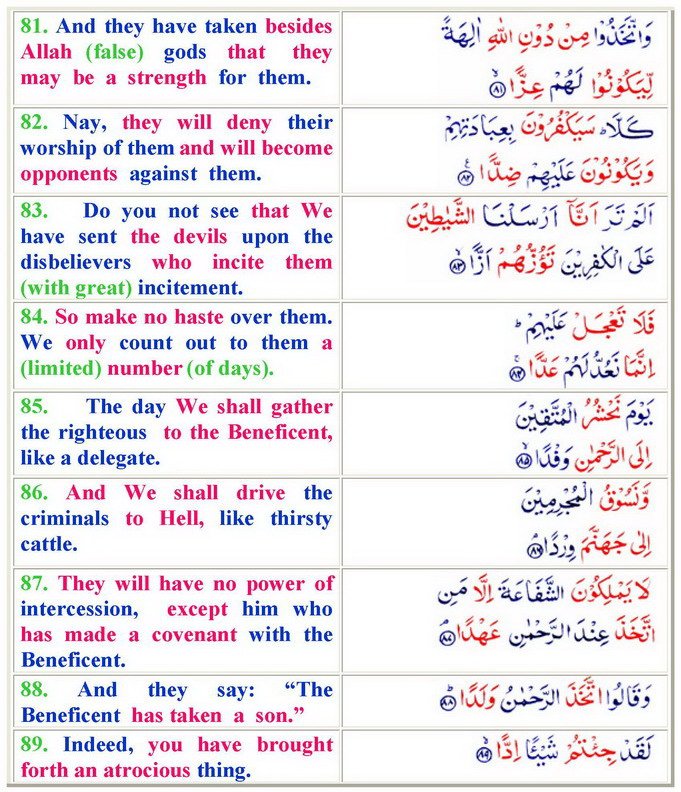 81. And they have taken besides
Allah (false) gods that they
may be a strength for them.
وَاتَّخَذُوۡا مِنۡ دُوۡنِ اللّٰهِ اٰلِهَةً
لِّيَكُوۡنُوۡا لَهُمۡ عِزًّا ۙ‏ ﴿۸۱﴾
82. Nay, they will deny their
worship of them and will become
opponents against them.
كَلَّا‌ ؕ سَيَكۡفُرُوۡنَ بِعِبَادَتِهِمۡ
وَيَكُوۡنُوۡنَ عَلَيۡهِمۡ ضِدًّا ﴿۸۲﴾
83. Do you not see that We
have sent the devils upon the
disbelievers who incite them
(with great) incitement.
اَلَمۡ تَرَ اَنَّاۤ اَرۡسَلۡنَا الشَّيٰطِيۡنَ
عَلَى الۡكٰفِرِيۡنَ تَؤُزُّهُمۡ اَزًّا ۙ‏ ﴿۸۳﴾
84. So make no haste over them.
We only count out to them a
(limited) number (of days).
فَلَا تَعۡجَلۡ عَلَيۡهِمۡ‌ ؕ
اِنَّمَا نَعُدُّ لَهُمۡ عَدًّا‌ ۚ‏ ﴿۸۴﴾
85. The day We shall gather
the righteous to the Beneficent,
like a delegate.
يَوۡمَ نَحۡشُرُ الۡمُتَّقِيۡنَ
اِلَى الرَّحۡمٰنِ وَفۡدًا ۙ‏ ﴿۸۵﴾
86. And We shall drive the
criminals to Hell, like thirsty
cattle.
وَّنَسُوۡقُ الۡمُجۡرِمِيۡنَ
اِلٰى جَهَنَّمَ وِرۡدًا‌ ۘ‏ ﴿۸۶﴾
87. They will have no power of
intercession, except him who
has made a covenant with the
Beneficent.
لَا يَمۡلِكُوۡنَ الشَّفَاعَةَ اِلَّا مَنِ
اتَّخَذَ عِنۡدَ الرَّحۡمٰنِ عَهۡدًا‌ ۘ‏ ﴿۸۷﴾
88. And they say: “The
Beneficent has taken a son.”
وَقَالُوا اتَّخَذَ الرَّحۡمٰنُ وَلَدًا ؕ‏ ﴿۸۸﴾
89. Indeed, you have brought
forth an atrocious thing.
لَقَدۡ جِئۡتُمۡ شَيۡـئًـا اِدًّا ۙ‏ ﴿۸۹﴾